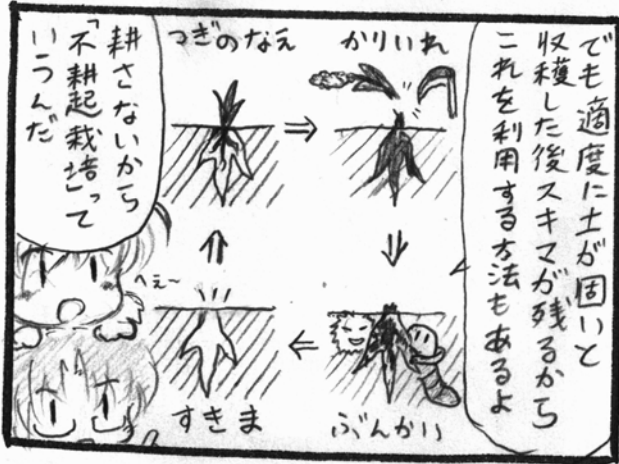 でも適度に土が固いと
収穫した後スキマが残るから
これを利用する方法もあるよ
かりいれ
ぶんかい
すきま
つぎのなえ
耕さないから
「不耕起栽培」って
いうんだ
へぇ〜